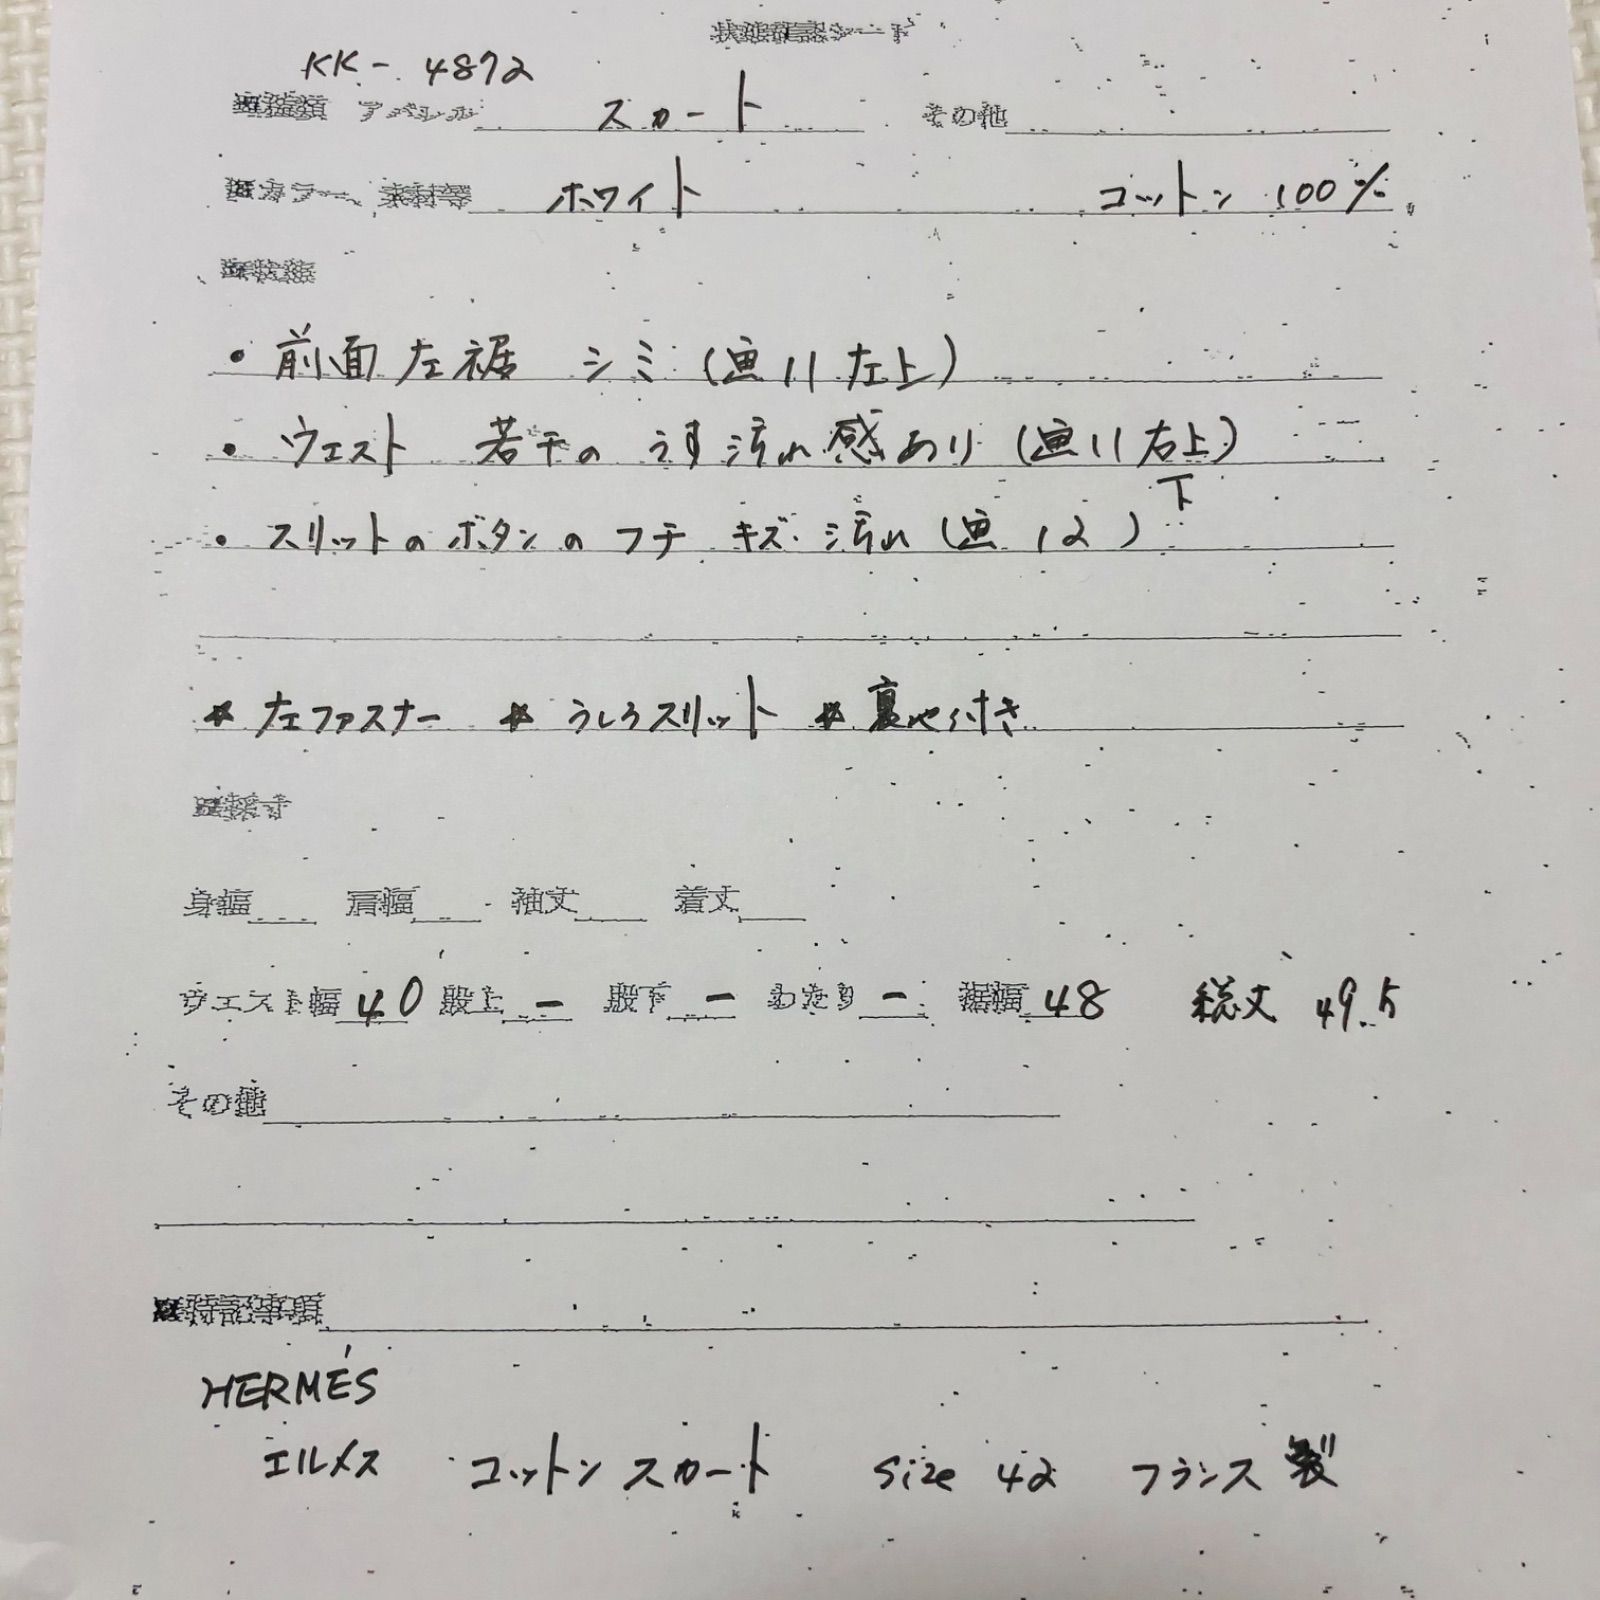 状態確認シート
KK- 4872
■種類 アパレル スカート その他
■カラー、素材等 ホワイト コットン 100%
■状態
・前面左裾 シミ (画11左上)
・ウエスト 若干のうす汚れ感あり (画11右上)
下
・スリットのボタンのフチ キズ・汚れ (画12)
* 左ファスナー * うしろスリット * 裏地付き
■採寸
身幅 肩幅 袖丈 着丈
ウエスト幅 40 股上 - 股下 - わたり - 裾幅 48 総丈 49.5
その他
■特記事項
HERMÉS
エルメス コットンスカート size 42 フランス製